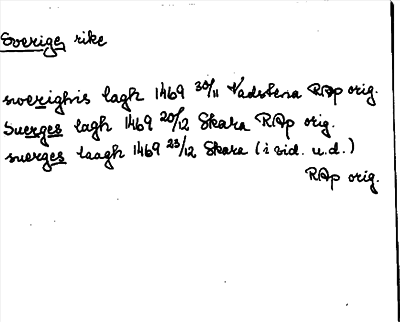 Sverige, rike
swerighis lagh 1469 30/11 Vadstena RAp orig.
Suerges lagh 1469 20/12 Skara RAp orig.
suerges laagh 1469 23/12 Skara (i sid. u.d.)
RAp orig.